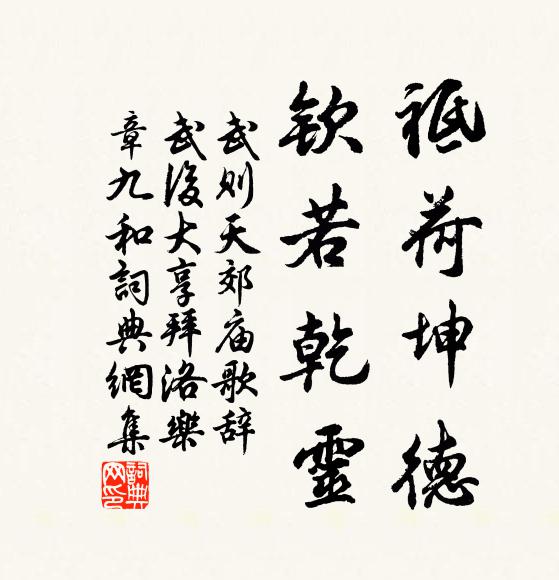 祗荷坤德
钦若乾靈
武则天郊庙歌辞
武後大享拜洛樂
章九和詞典網集
詞典网印